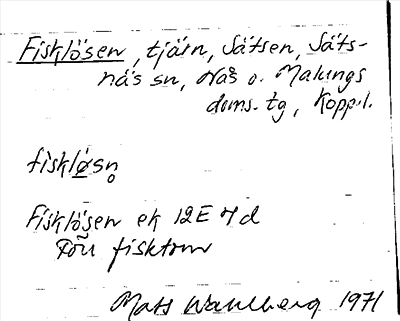 Fisklösen, tjärn, Sätsen, Säts-
näs sn, Nås o. Malungs
doms. tg, Kopp.l.
fiskløsn̥
Fisklösen ek 12E 7d
Förr fisktom
Mats Wahlberg 1971